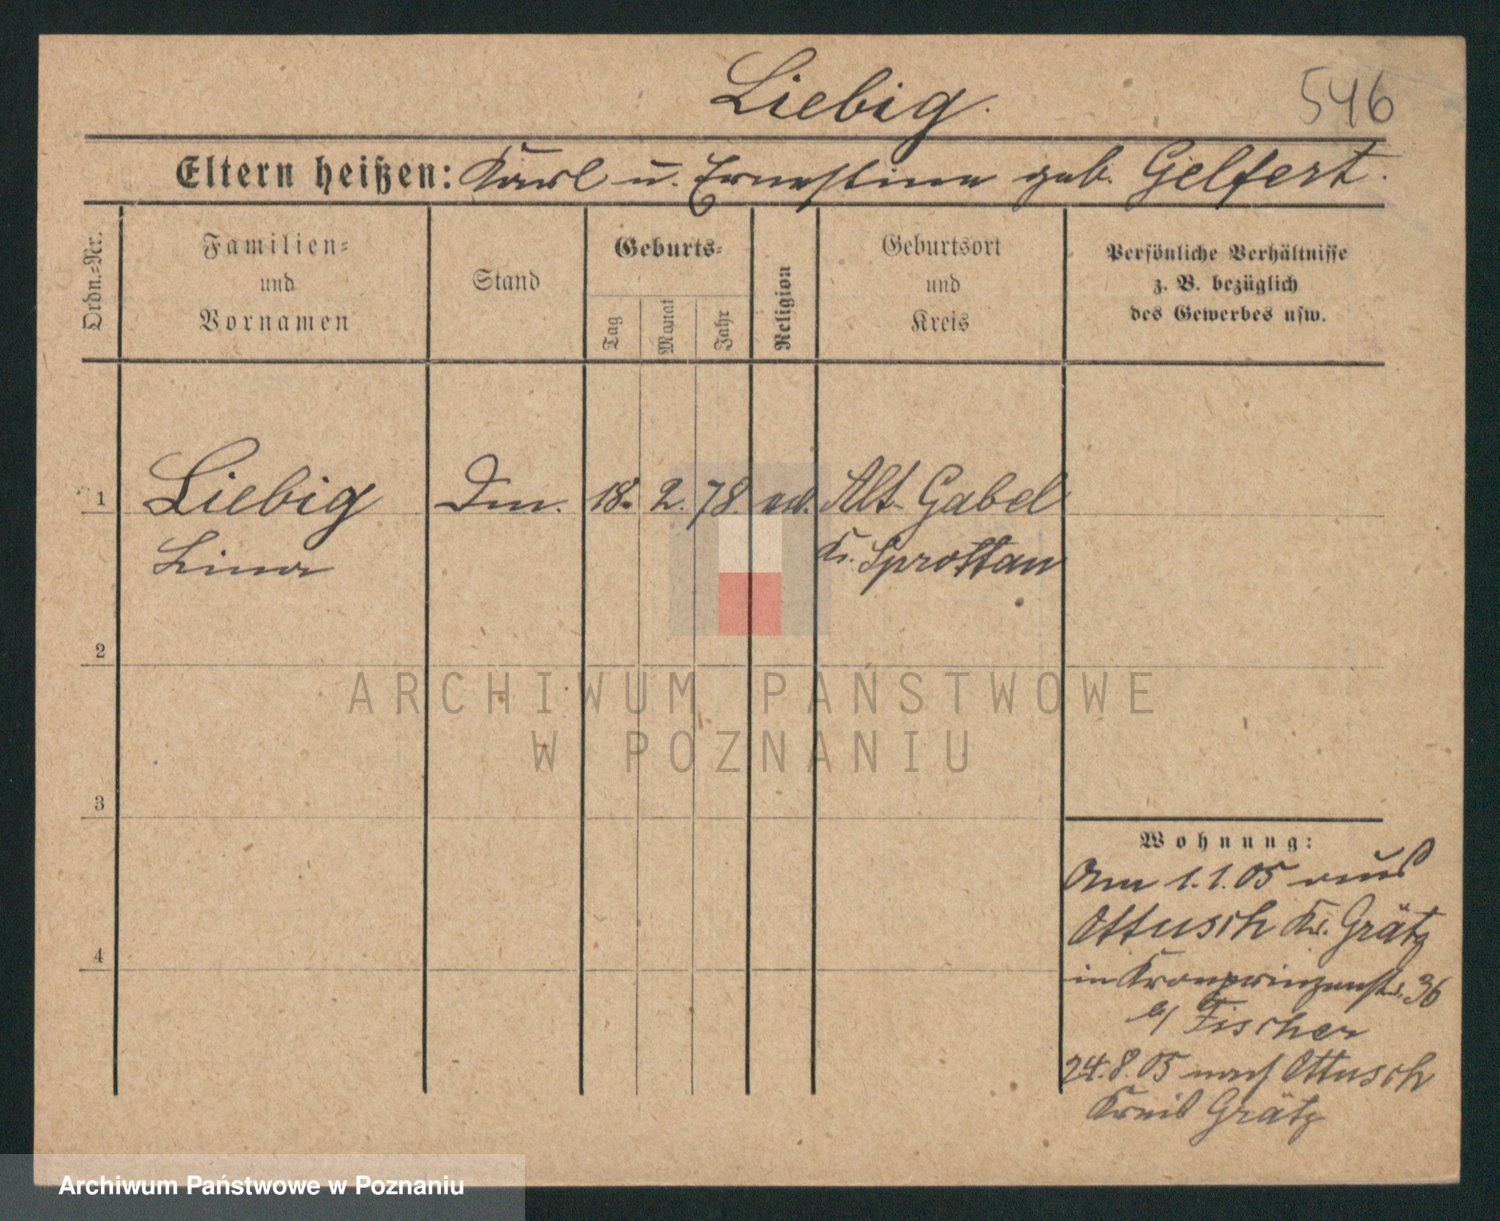 Liebig.
546
Eltern heißen: Karl u. Ernestine geb. Gelfert.
Ordn.-Nr.
Familien-
und
Vornamen
Stand
Geburts-
Tag
Monat
Jahr
Religion
Geburtsort
und
Kreis
Persönliche Verhältnisse
z. B. bezüglich
des Gewerbes usw.
1 Liebig 18. 2. 78 Alt Gabel
Lina Kr. Sprottau
2
3
4
Wohnung:
Am 1.1.05 aus
Ottusch Kr. Grätz
in Kronprinzenstr. 36
b/ Fischer
24.8.05 nach Ottusch
Kreis Grätz
ARCHIWUM PAŃSTWOWE
W POZNANIU
Archiwum Państwowe w Poznaniu